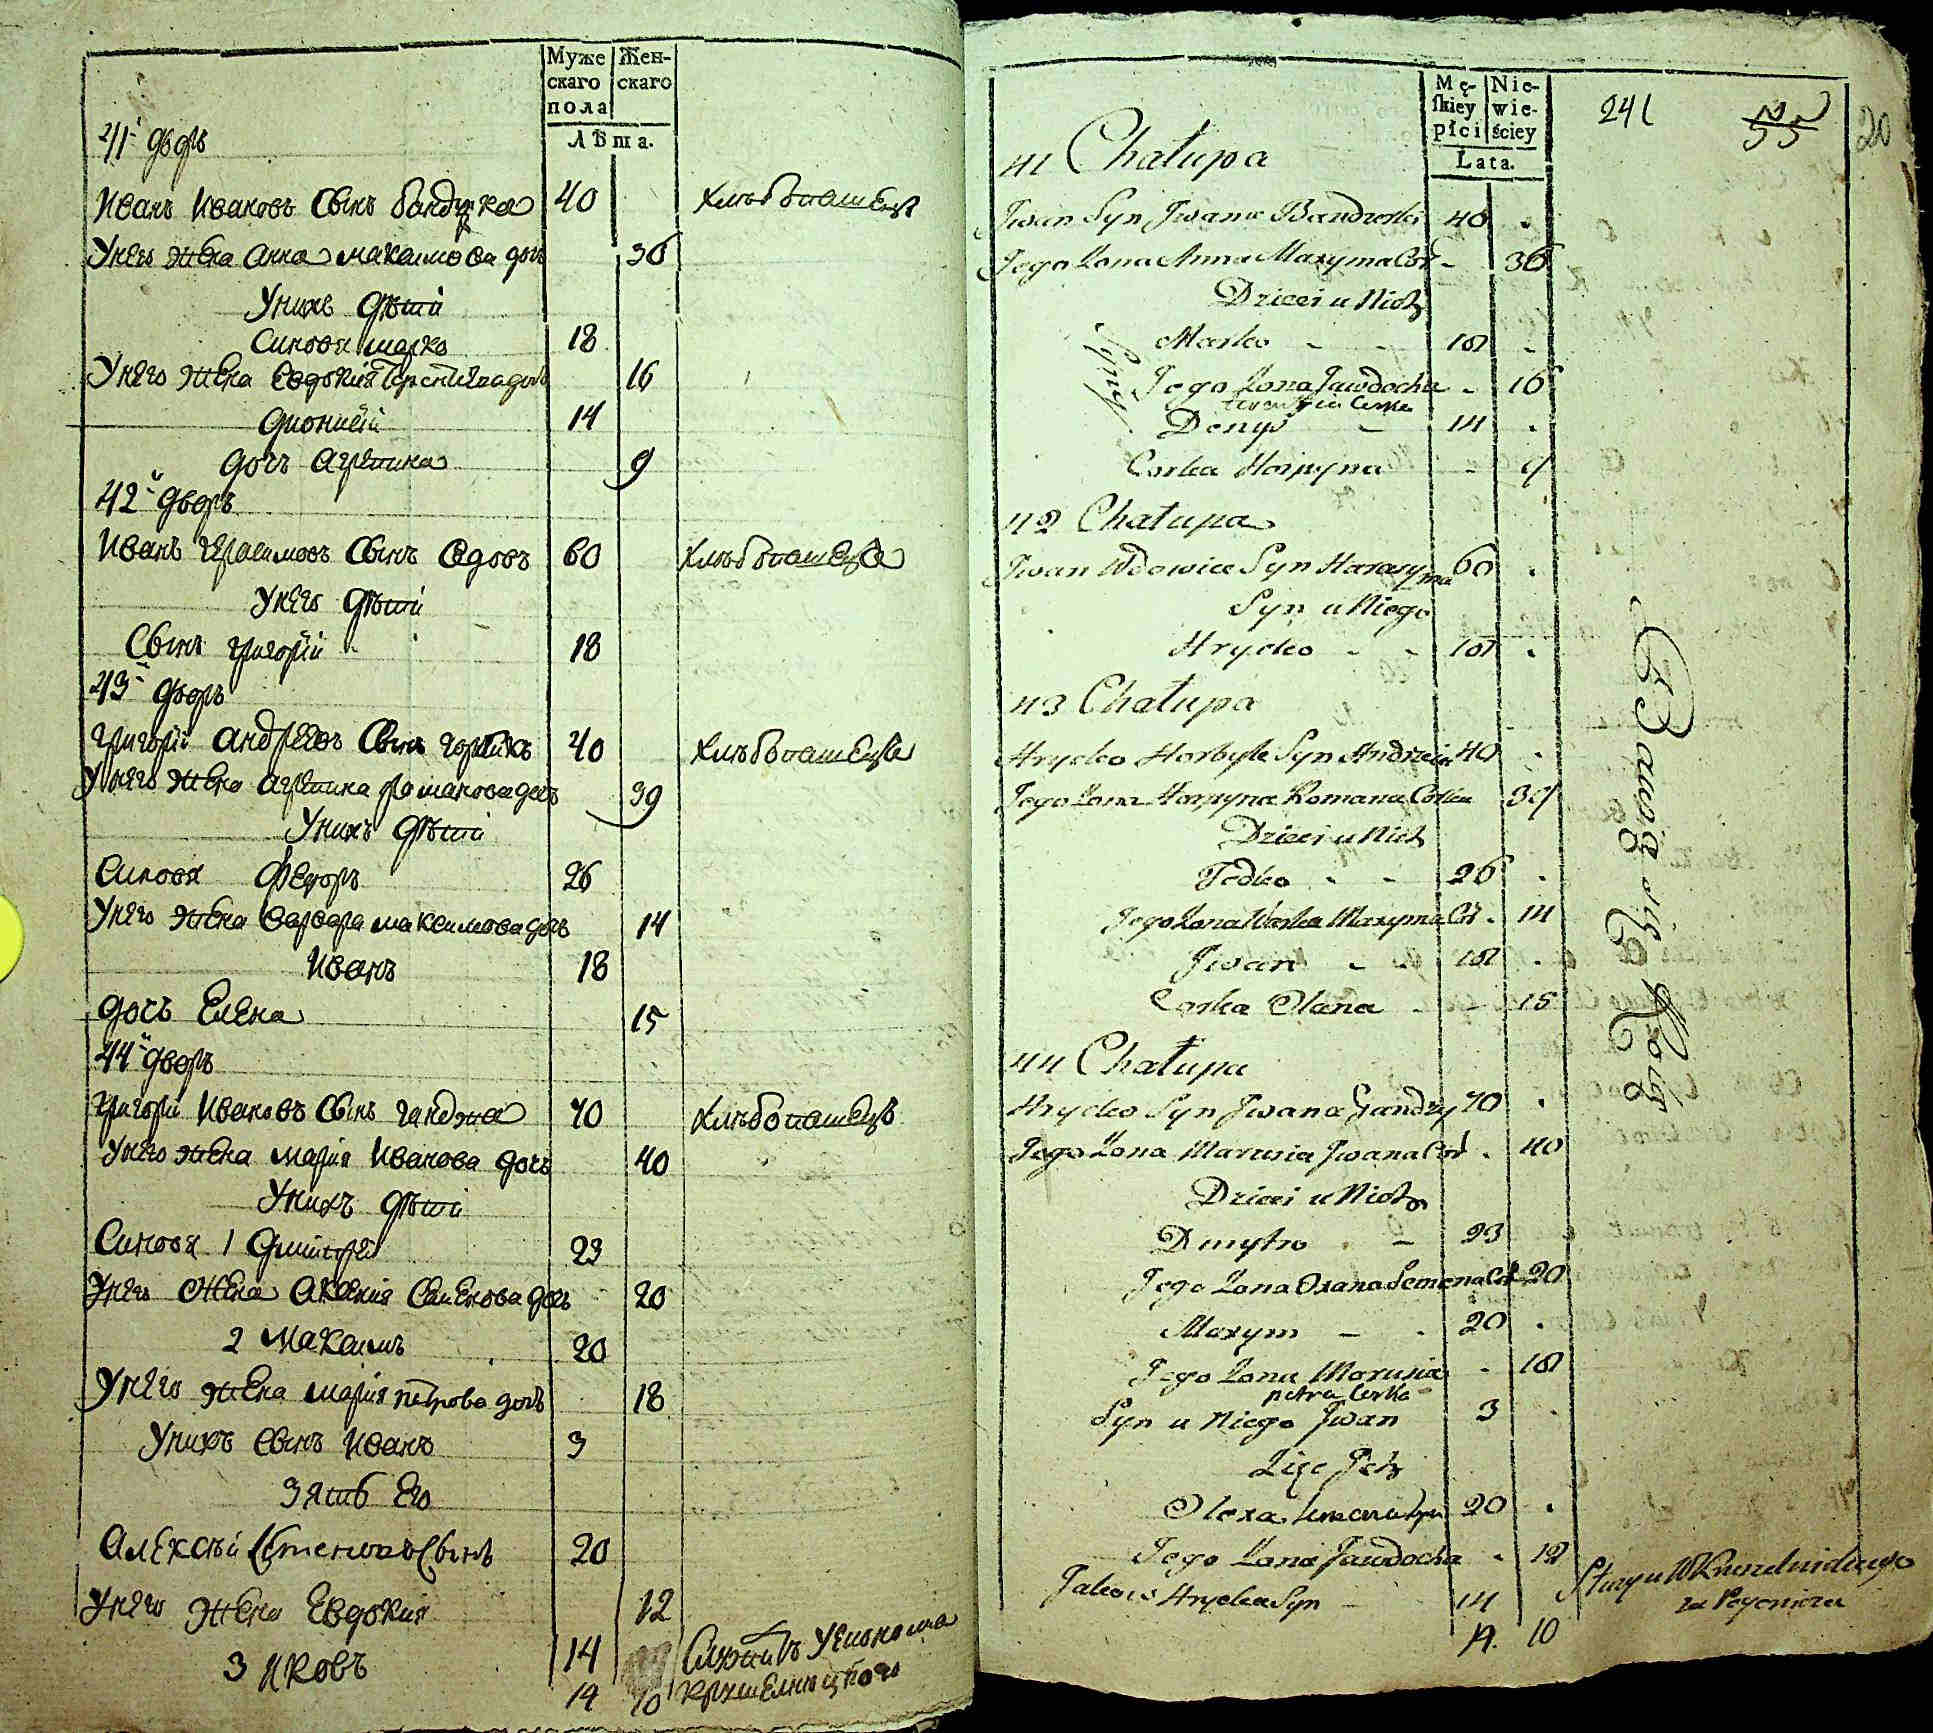 Муже Жен-
скаго скаго
пола
Лѣта.
41й дворъ
Иванъ Ивановъ Сынъ бандурка 40 хлѣбопашецъ
Унего жена анна максимова дочь 36
Унихъ дѣти
Синовя марко 18
Унего жена Евдокия терентиева дочь 16
дионисий 14
дочь агрепина 9
42й дворъ
Иванъ герасимовъ Сынъ вдовъ 60 хлѣбопашецъ
Унего дѣти
Сынъ григорий 18
43й дворъ
григорий андреевъ Сынъ горбикъ 40 хлѣбопашецъ
Унего жена агрепина романова дочь 39
Унихъ дѣти
Синовя федоръ 26
Унего жена варвара максимова дочь 14
Иванъ 18
дочь Елена 15
44й дворъ
григорий Ивановъ Сынъ гандзиа 70 хлѣбопашецъ
Унего жена мария Иванова дочь 40
Унихъ дѣти
Синовя 1 дмитрей 23
Унего жена аксения Семенова дочь 20
2 максимъ 20
Унего жена мария петрова дочь 18
Унихъ сынъ Иванъ 3
Зять Его
алексѣй Сынъ 20
Унего жена Евдокия 12
3 яковъ 14 Служитъ
19 10
Mę- Nie-
skiey wie-
płci ściey
Łata.
241 55 20
41 Chałupa
Jwan Syn Jwana 40
Jego Żona Anna Maxyma Cor 36
Dzieci u Nich
Synы
Marko 18
Jego Żona Jawdocha 16
Denys 14
Corka Horpyna 9
42 Chałupa
Jwan Wdowiec Syn Harasyma 60
Syn u Niego
Hrycko 18
43 Chałupa
Hrycko Horbyk Syn Andreia 40
Jego Żona Horpyna Romana Corka 39
Dzieci u Nich
Fedko 26
Jego Żona Warka Maxyma Cor 14
Jwan 18
Corka Olana 15
44 Chałupa
Hrycko Syn Jwana Gandzy 70
Jego Żona Marusia Jwana Cor 40
Dzieci u Nich
Dmytro 23
Jego Żona Oxana Semena Cor 20
Maxym 20
Jego Żona Marusia 18
petra Corka
Syn u Niego Jwan 3
Zięć Jch
Olexa Syn 20
Jego Żona Jawdocha 12
Jakow Hrycka Syn 14
19. 10